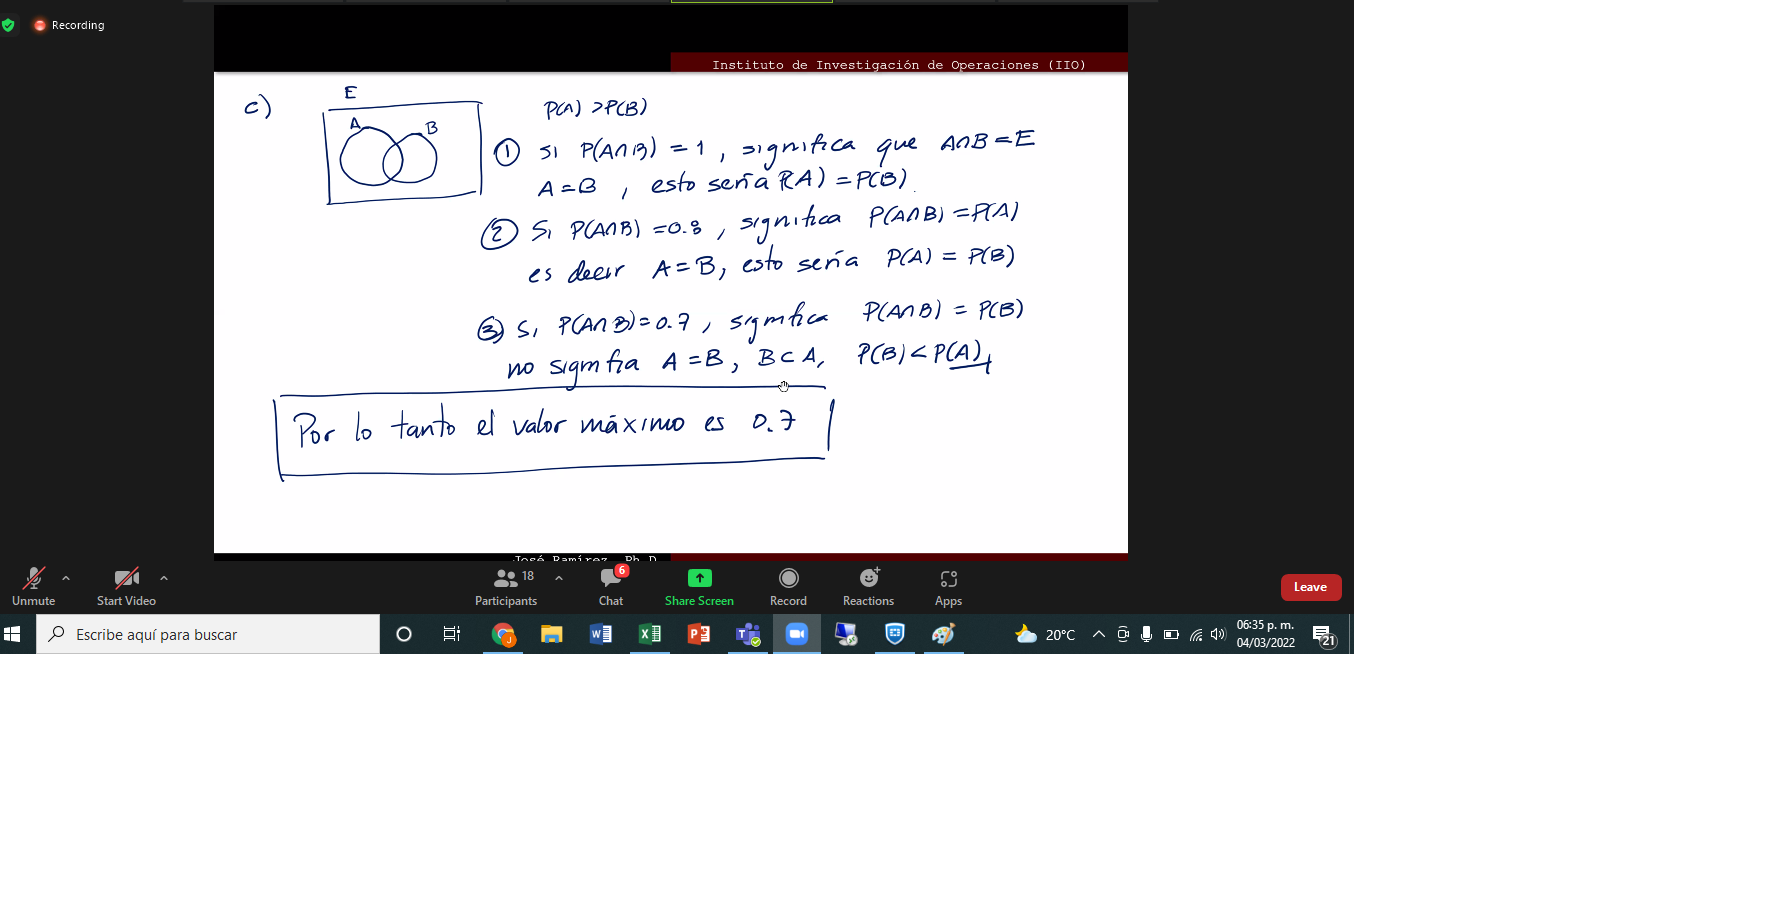 Recording
Instituto de Investigación de Operaciones (IIO)
c)
E
A
B
P(A) > P(B)
① Si P(A∩B) = 1, significa que A∩B = E
A = B, esto sería P(A) = P(B).
② Si P(A∩B) = 0.8, significa P(A∩B) = P(A)
es decir A = B, esto sería P(A) = P(B)
③ Si P(A∩B) = 0.7, significa P(A∩B) = P(B)
no signifia A = B, B ⊂ A, P(B) < P(A)
Por lo tanto el valor máximo es 0.7
José Ramírez, Ph.D
Unmute
Start Video
Participants
18
Chat
6
Share Screen
Record
Reactions
Apps
Leave
Escribe aquí para buscar
20°C
06:35 p. m.
04/03/2022
21